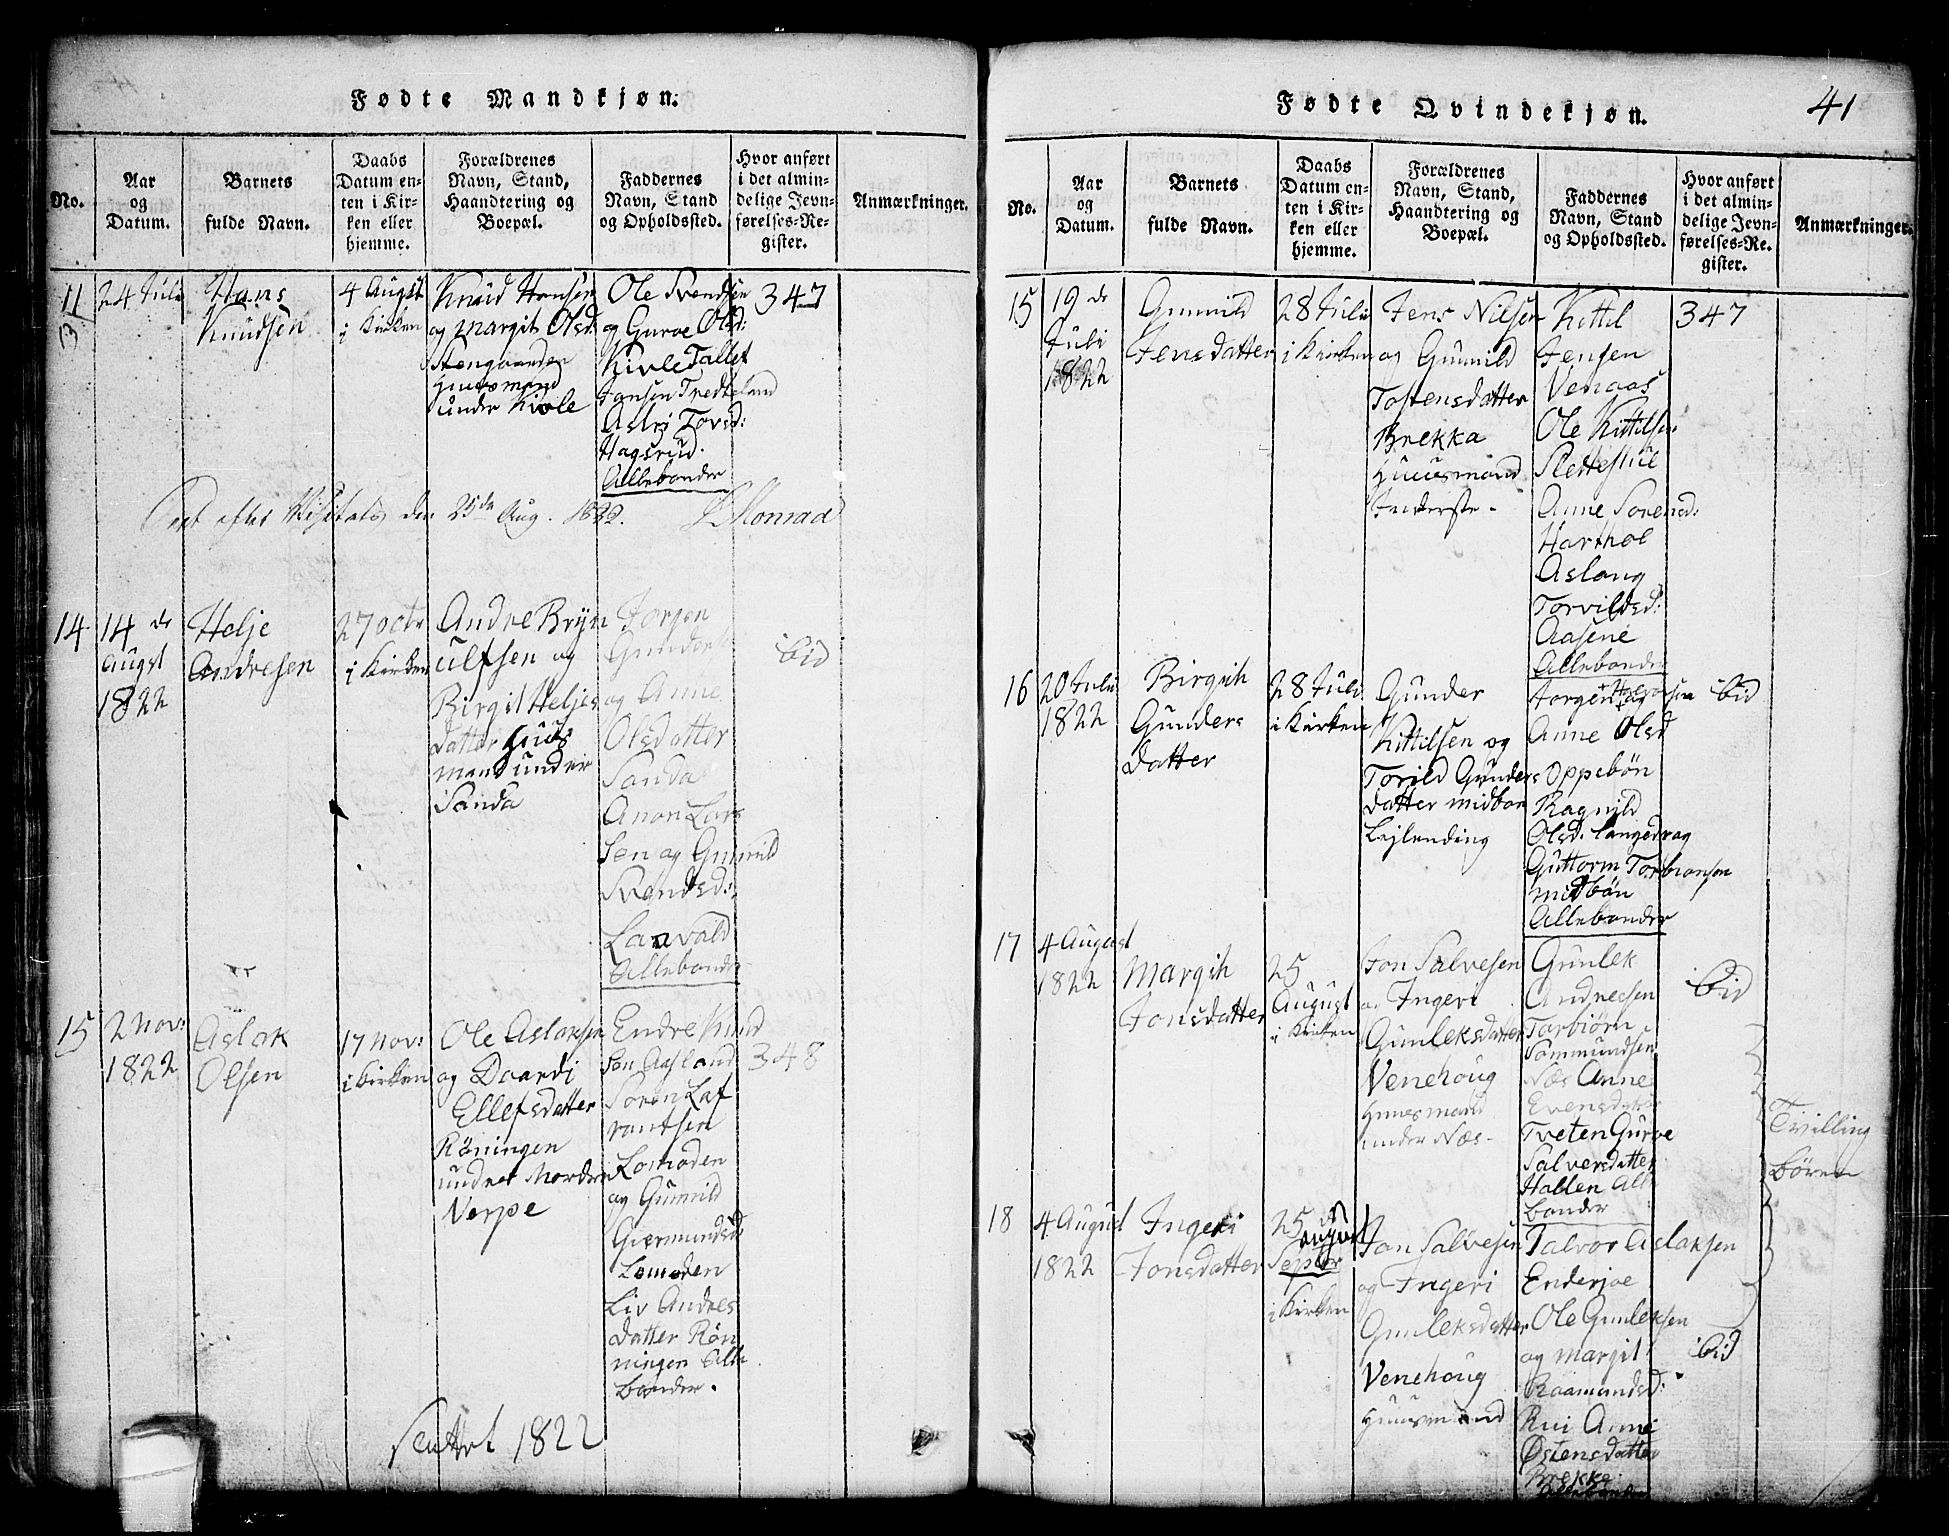 Fødte Mandkjøn.
No.
Aar
og
Datum.
Barnets
fulde Navn.
Daabs
Datum en-
ten i Kir-
ken eller
hjemme.
Forældrenes
Navn, Stand,
Haandtering og
Boepæl.
Faddernes
Navn, Stand
og Opholdssted.
Hvor anført
i det almin-
delige Jevn-
førelses-Re-
gister.
Anmærkninger.
11
3
24 Juli
Hans
Knudsen
4 Augst
i Kirken
Knud Hansen
og Margit Olsd:
Huusmand
under Kivle
Ole Svendsen
og Gurve Olsd:
Kivle Tallef
Jansen Tredteland
Aslei Torsd:
Hagsrud.
Allebonder
347
den 25de Aug. 1822.
14
14 de
Augst
1822
Helje
Andresen
27 octr
i Kirken
Andre Bryn
ulfsen og
Birgit Heljes
datter Huus
mand under
Sanda
Jorgen
og Anne
Olsdatter
Sanda
Anon Lars
sen og Gunnild
Svendsd:
Lanvald
Allebonder
ibid
15
2 Nov:
1822
Aslak
Olsen
17 Nov:
i kirken
Ole Aslaksen
og Daardi
Ellefsdatter
Röningen
under Nordre
Verpe
Endre Knud
sen Aasland
Soren Laf
rantsen
Lomoden
og Gunnild
Giermundsd
Lomoden
Liv Andres
datter Rön
ningen Alle
bonder.
348
Sluttet 1822
Fødte Qvindekjøn.
41
No.
Aar
og
Datum.
Barnets
fulde Navn.
Daabs
Datum en-
ten i Kir-
ken eller
hjemme.
Forældrenes
Navn, Stand,
Haandtering og
Boepæl.
Faddernes
Navn, Stand
og Opholdssted.
Hvor anført
i det almin-
delige Jevn-
førelses-Re-
gister.
Anmærkninger.
15
19 de
Juli
1822
Gunnild
Jensdatter
28 Juli
i Kirken
Jens Nilsen
og Gunnild
Tostensdatter
Brekka
Huusmand
Inderste -
Kittil
Jensen
Venaas
Ole Kittilsen
Slettestul
Anne Sorensd:
Harthol
Aslaug
Torvildsd:
Aasene
Allebonder
347
16
20 Juli
1822
Birgith
Gunders
datter
28 Juli
i Kirken
Gunder
Kittilsen og
Torild Gunders
datter midbön
Lejlending
Jorgen Halvorsen og
Anne Olsd
Oppebön
Ragnild
Olsd. langedrag
Guttorm Torbiønsen
midbön
Allebonder
ibid
17
4 August
1822
Margith
Jonsdatter
25
August
i Kirken
Jon Salvesen
og Ingeri
Gunleksdatter
Venehoug
Huusmand
under Næs -
Gunlek
Andresen
Torbiörn
Sommundsen
Næs Anne
Evensdatter
Tveten Gurve
Salversdatter
Hollen Alle
bonder
ibid
Tvilling
börn
18
4 August
1822
Ingeri
Jonsdatter
25 de
august
Septbr
i Kirken
Jon Salvesen
og Ingeri
Gunleksdatter
Venehoug
Huusmand
Talvor Aslaksen
Enderjoe
Ole Gunleksen
og Margit
Roamundsd:
Rui Anne
Østensdatter
Brekke
Allebonder
ibid